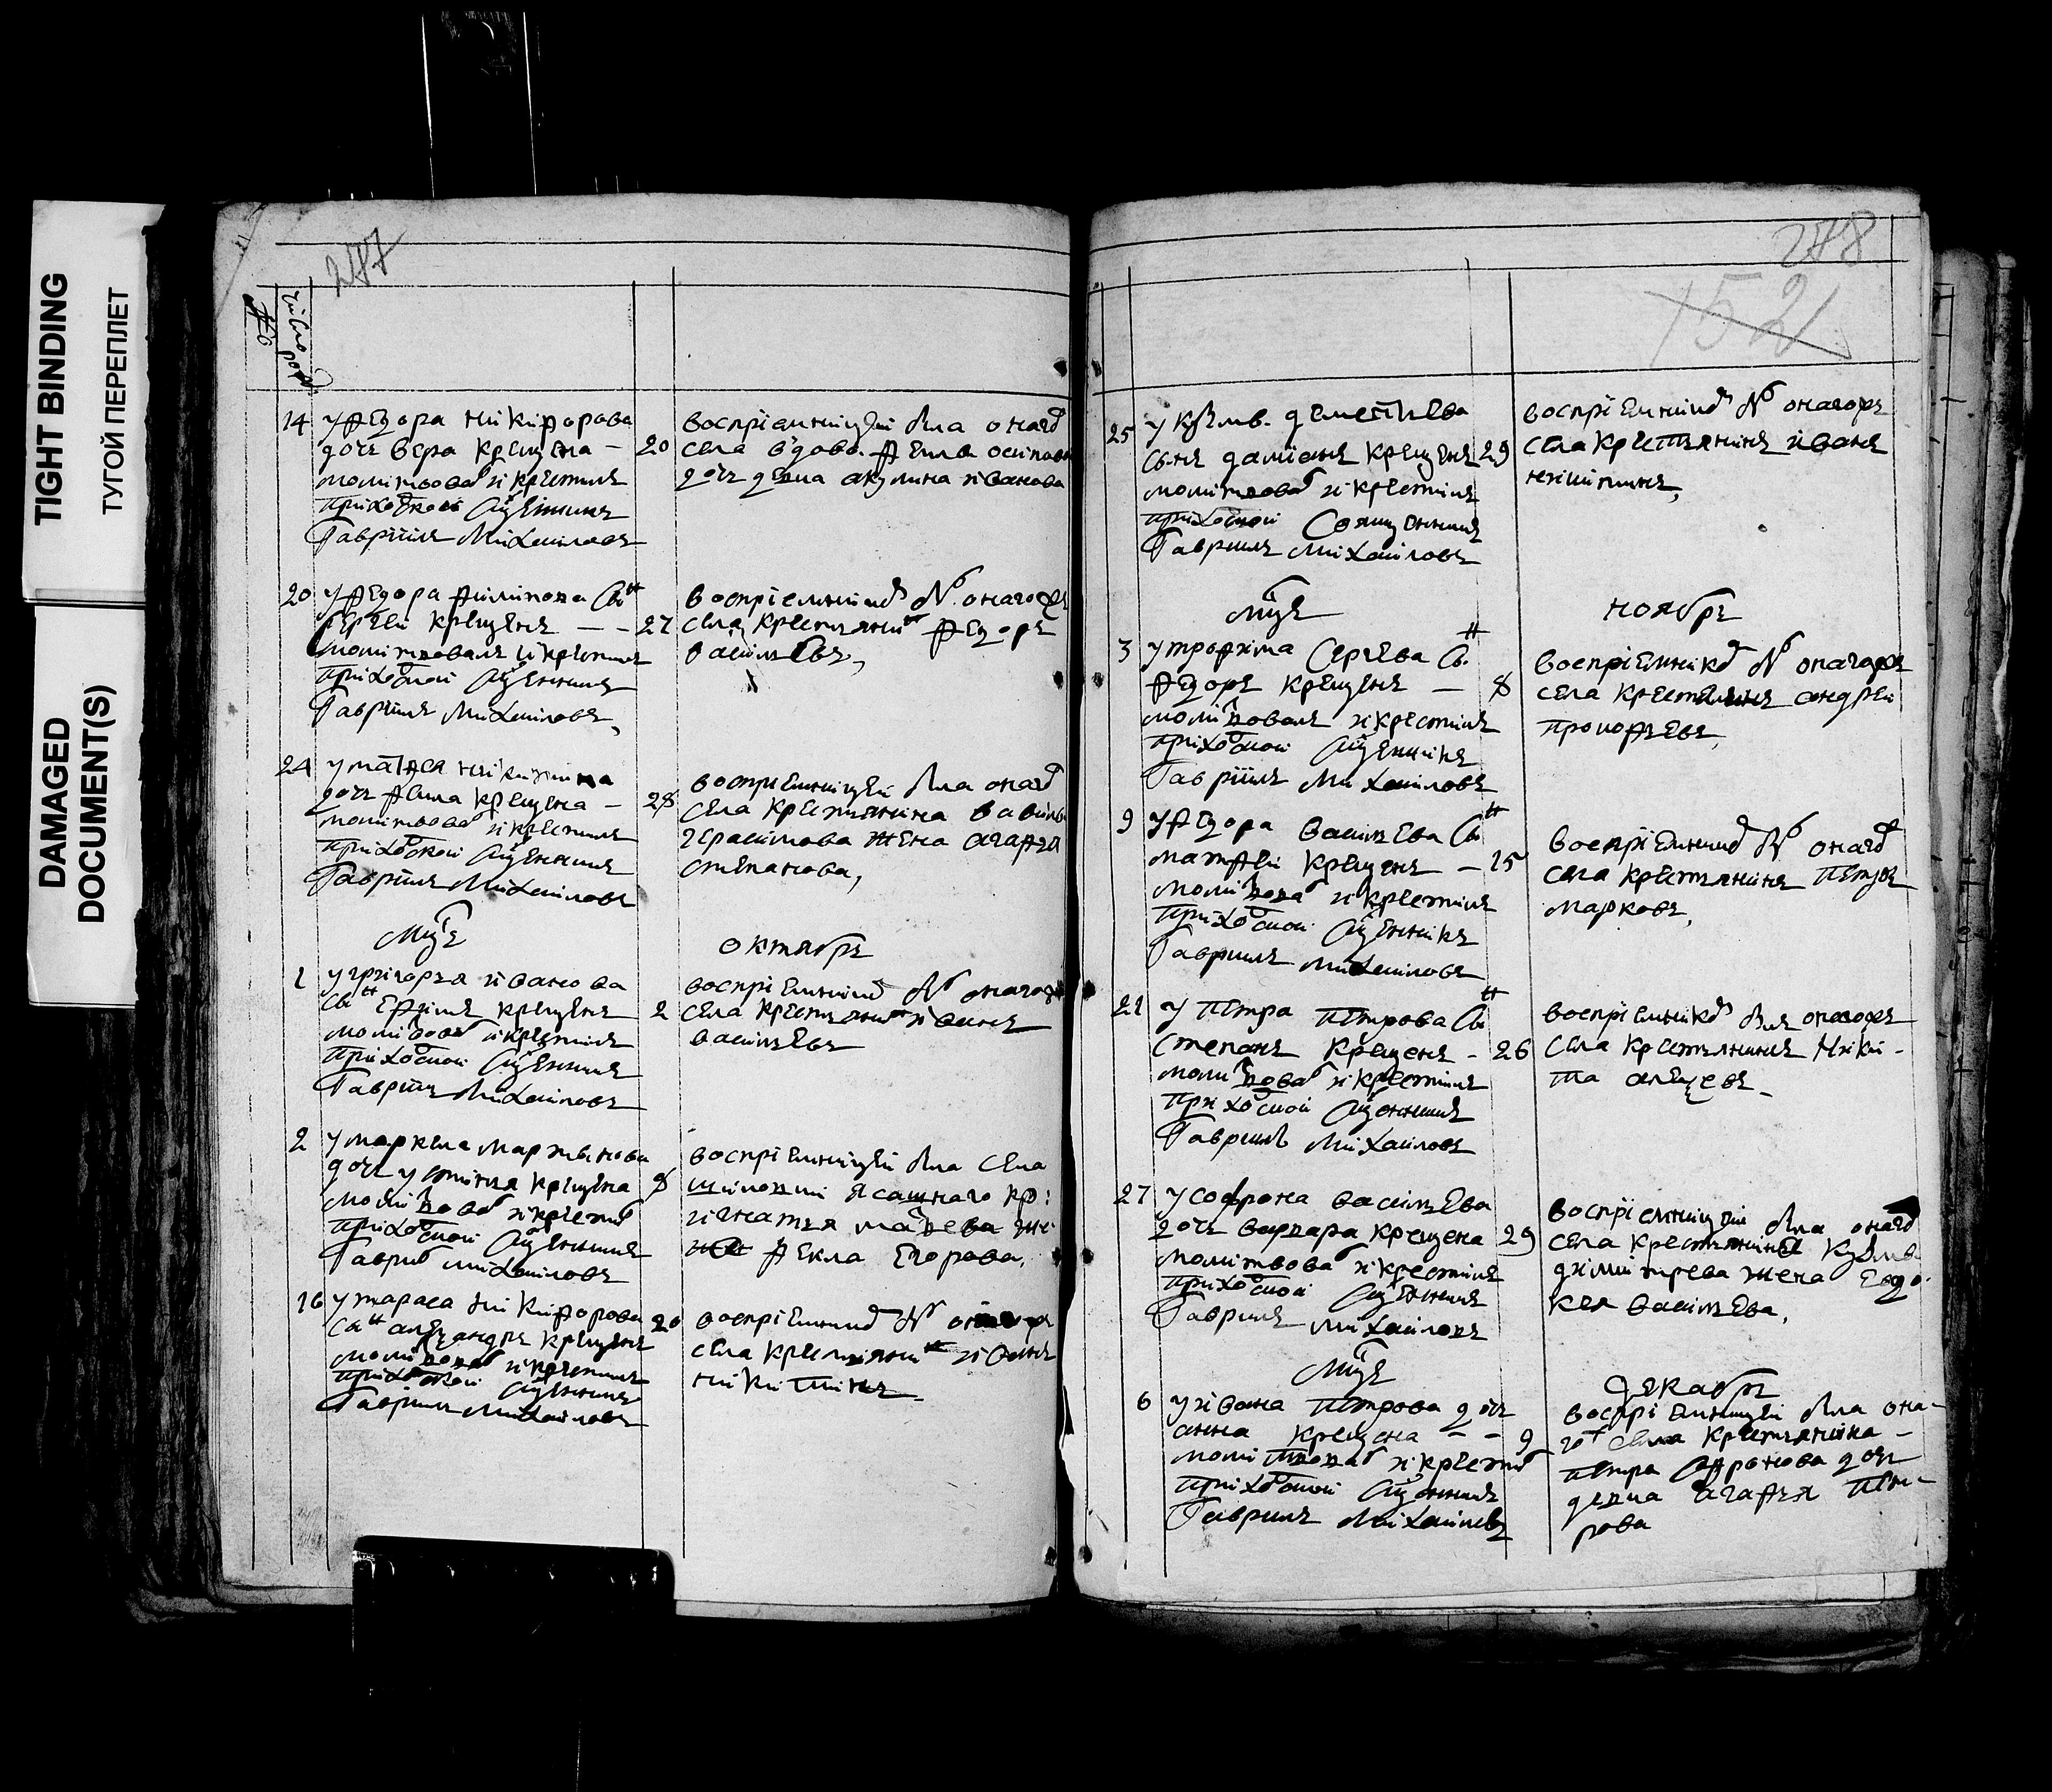 TIGHT BINDING
ТУГОЙ ПЕРЕПЛЕТ
DAMAGED
DOCUMENT(S)
287
число
рож
14
уѲедора никиѳорова
дочь вера крещена —
20
молитвовал и крестилъ
приходской Сщенникъ
Гаврїилъ Михаиловъ
воспрїемницей была онаго
села вдова
дочь девка акулина иванова
20
уѲедора Филипова Снъ
Сергеи крещенъ — —
27
молитвовалъ и крестилъ
приходской Сщенникъ
Гаврїилъ Михаиловъ,
воспрїемник был онагоже
села крестьянинъ Ѳедоръ
васильевъ,
24
у матѳея никитина
дочь крещена —
28
молитвовал и крестилъ
приходской Сщенникъ
Гаврїилъ Михаиловъ
воспрїемницей была онаго
села крестьянина
герасимова жена агаѳья
степанова,
Мцъ
октябрь
1
у григорья иванова
Снъ Ефимъ крещенъ
2
молитвовал и крестилъ
приходской Сщенникъ
Гаврїилъ Михаиловъ
воспрїемник был онагоже
села крестьянинъ иванъ
васильевъ
2
у маркела мартынова
дочь устинья крещена
8
молитвовал и крестил
приходской Сщенникъ
Гаврил михаиловъ
воспрїемницей была села
ясашнаго кр:
игнатья матвева же
на Ѳекла Егорова,
16
у тараса никиѳорова
Снъ александръ крещенъ
20
молитвовал и крестилъ
приходской Сщенникъ
Гаврїилъ Михаиловъ
воспрїемник был онагоже
села крестьянинъ иванъ
никитинъ
278
152
25
у кузмы деменtьева
Сынъ дамїанъ крещенъ
29
молитвовал и крестилъ
приходской Священникъ
Гаврилъ Михаиловъ
воспрїемник был онагожъ
села крестьянинъ иванъ
никитинъ,
Мцъ
ноябрь
3
у троѳима Сергева Снъ
Ѳедоръ крещенъ —
8
молитвовалъ и крестилъ
приходской Сщенникъ
Гаврїилъ Михаиловъ
воспрїемникъ был онагожъ
села крестьянинъ андреи
прокоѳьевъ,
9
уѲедора васильева Снъ
матѳеи крещенъ —
15
молитвовал и крестилъ
приходской Сщенникъ
Гаврилъ михаиловъ
воспрїемник был онаго
села крестьянинъ Петръ
марковъ,
21
у петра петрова Снъ
Степанъ крещенъ -
26
молитвовал и крестилъ
приходской Сщенникъ
Гаврилъ Михаиловъ
воспрїемникъ был онагожъ
села крестьянинъ Ники-
та
27
у софрона васильева
дочь варвара крещена
29
молитвовал и крестилъ
приходской Сщенникъ
Гаврилъ михаиловъ
воспрїемницей была онаго
села крестьянина кузмы
димитрева жена Евдо-
кея васильева,
Мцъ
декабрь
6
у ивана петрова дочь
анна крещена — —
9
молитвовал и крестил
приходской Сщенникъ
Гаврилъ Михаиловъ
воспрїемницей была она-
го села крестьянина —
петра дочь
девка агаѳья пет-
рова